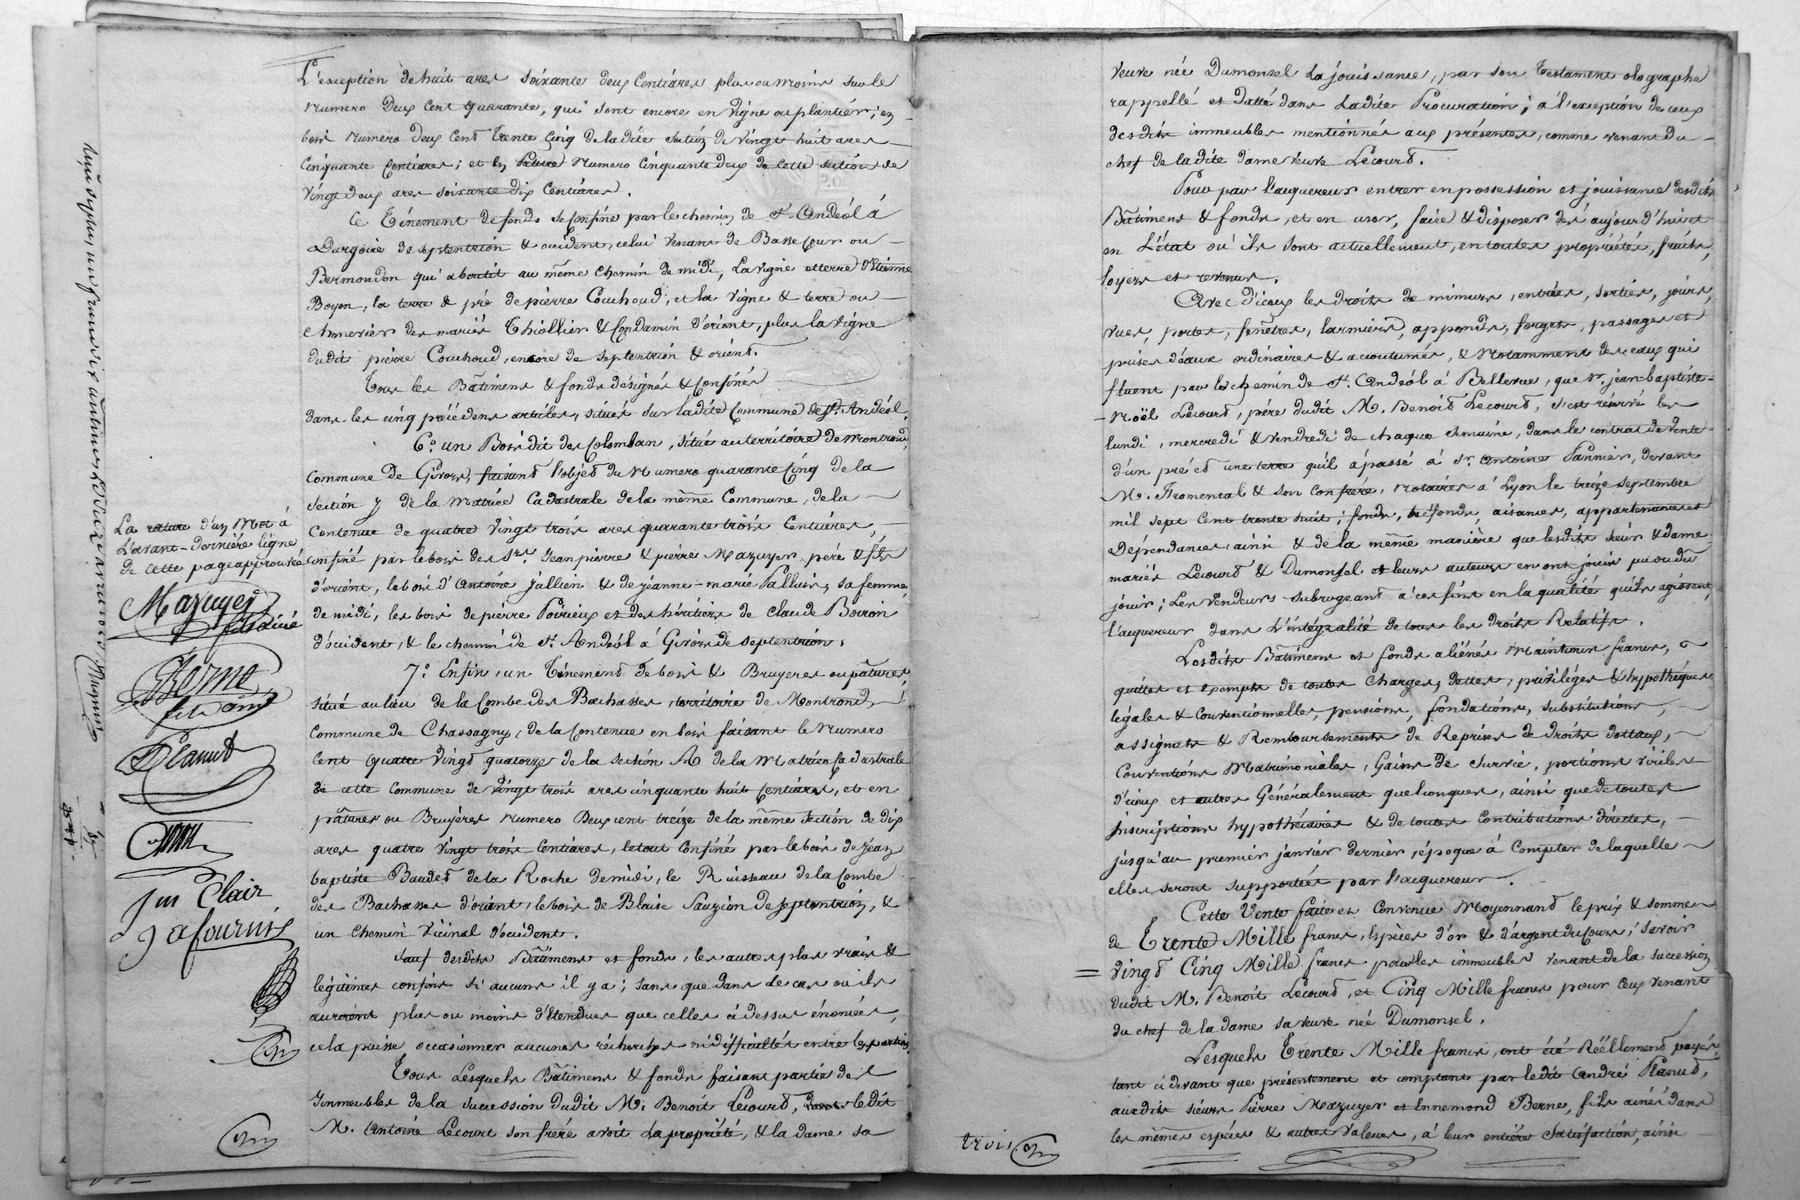 L'exception de huit ares soixante deux Centiares plus ou moins sur le
Numero Deux Cent quarante, qui sont encore en vigne ou plantier; en
bois Numero deux Cent Trente Cinq de ladite Section de Vingt huit ares
Cinquante Centiares; et en Pature Numero Cinquante deux de Cette Section de
Vingt deux ares soixante dix Centiares.
Ce Ténement de fonds se Confine par le chemin de St. Andéol à
Dargoire de septentrion & occident, celui venant de Basse Cour ou
Bermondon qui aboutit au même Chemin de midi, La vigne et terre d'Etienne
Boyon, la terre & pré de pierre Couchoud, et la Vigne & terre ou
des mariés Thiollier & Condamin d'orient, plus la vigne
dudit pierre Couchoud, encore de septentrion & orient.
Tous les Bâtimens & fonds désignés & Confinés
Dans les cinq précédens articles, situés sur ladite Commune de St. Andéol.
6.° un Bois dit des Colomban, situé au territoire de Montrond,
Commune De Givors, faisant l'objet du Numero quarante Cinq de la
Section y de la Matrice Cadastrale de la même Commune, de la
Contenue de quatre vingt trois ares quarrante trois Centiares,
confiné par le bois des Srs. Jean pierre & pierre Mazuyer, père & fils
d'orient, le bois d'Antoine Jullien & de Jeanne-marie Palluis, sa femme,
de midi, les bois de pierre Poirieux et des héritiers de Claude Berron
d'occident, & le chemin de St. Andéol à Givors de septentrion.
7.° Enfin, un Ténement de bois & Bruyeres ou pâtures,
situé au lieu de la Combe des Bachasses, territoire de Montrond,
Commune de Chassagny, de la Contenue en bois faisant le Numero
Cent Quatre Vingt quatorze de la section A de la Matrice Cadastrale
de cette Commune de Vingt trois ares cinquante huit Centiares, et en
pâtures ou Bruyères Numero Deux cent treize de la même Section de dix
ares quatre vingt trois Centiares, le tout Confiné par le bois de Jean
baptiste Baudet de la Roche de midi, le Ruisseau de la Combe
des Bachasses d'orient, le bois de Blaise Sauzion de septentrion, &
un Chemin vicinal d'occident.
Sauf desdits Bâtimens et fonds, les autres plus vrais &
légitimes confins si aucuns il y a; sans que dans le cas où ils
auroient plus ou moins d'étendues que celles ci dessus énoncées,
cela puisse occasionner aucunes récherches ni difficultés entre les parties
Tous Lesquels Bâtimens & fonds faisant partie des
Immeubles de la Succession dudit M. Benoît Lecourt, dont ledit
M. Antoine Lecourt son frère avoit La propriété, & la dame sa
La rature d'un Mot à
L'avant-dernière ligne
de cette page approuvée
Mazuyer
fils ainé
Berne
fils ainé
Planud
Jm Clair
J a fournis
veuve née Dumonsel La jouissance, par son Testament olographe
rappellé et datté dans Ladite Procuration; à l'exception de ceux
desdits immeubles mentionnés aux présentes, comme venant du
chef de la dite dame veuve Lecourt.
Pour par l'acquereur entrer en possession et jouissance desdits
Bâtimens & fonds, et en user, faire & disposer dès aujourd'hui et
en L'état où ils sont actuellement, en toutes propriétés, fruits,
loyers et revenus.
Avec d'iceux les droits de mimurs, entrées, sorties, jours,
vues, portes, fenêtres, larmiers, apponds, forgets, passages et
prises d'eaux ordinaires & accoutumés, & Notamment des eaux qui
fluent par le chemin de St. Andéol à Bellevue, que Sr. jean-baptiste-
Noël Lecourt, père dudit M. Benoit Lecourt, s'est réservé les
lundi, mercredi & Vendredi de chaque semaine, dans le contrat de vente
d'un pré et une terre qu'il a passé à Sr. Antoine Pannier, devant
M. Fromental & son Confrère, Notaires à Lyon le treize septembre
mil sept Cent trente huit; fonds, trèfonds, aisances, appartenances et
Dépendances, ainsi & de la même manière que lesdits sieur & dame
mariés Lecourt & Dumonsel et leurs auteurs en ont joui ou pu ou dû
jouir; Les vendeurs subrogeant à ces fins en la qualité qu'ils agissent,
l'acquereur dans L'intégralité de tous les droits Relatifs.
Lesdits Bâtimens et fonds aliénés Maintenus francs,
quittes et exempts de toutes Charges, dettes, priviléges & hypothéques
légales & Conventionnelles, pensions, fondations, substitutions,
assignats & Remboursements de Reprises de Droits dottaux,
Conventions Matrimoniales, Gains de Survie, portions viriles
d'iceux et autres Généralement quelconques, ainsi que de toutes
Inscriptions hypothécaires & de toutes Contributions directes,
jusqu'au premier janvier dernier, époque à Compter de laquelle
elles seront supportées par l'acquereur.
Cette Vente faite et Convenue Moyennant le prix & somme
de Trente Mille francs, Espèces d'or & d'argent du Cours; savoir
vingt Cinq Mille francs pour les immeubles venant de la succession
dudit M. Benoit Lecourt, et Cinq Mille francs pour Ceux venant
du chef de la dame sa veuve née Dumonsel.
Lesquels Trente Mille francs, ont été Réellement payés,
tant ci devant que présentement et comptant par ledit André Planud,
auxdits sieurs Pierre Mazuyer et Ennemond Berne, fils ainés dans
les mêmes espèces & autres Valeurs, à leur entière Satisfaction, ainsi
trois